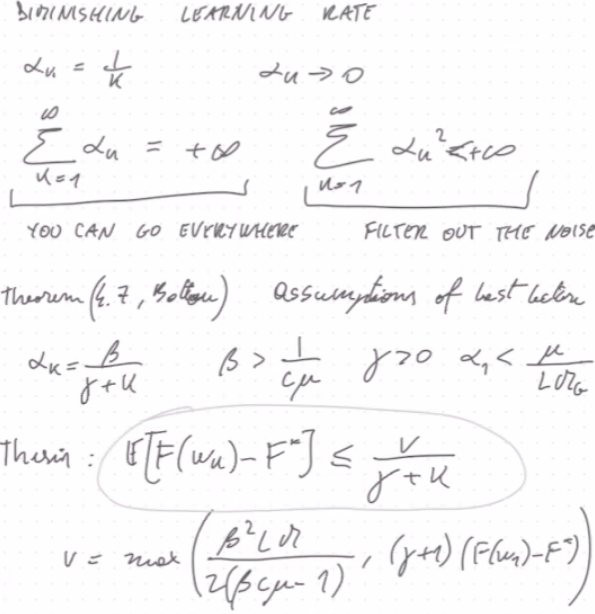 DIMINISHING LEARNING RATE
α_k = 1/k    α_k → 0
∑_{k=1}^{∞} α_k = +∞    ∑_{k=1}^{∞} α_k² < +∞
YOU CAN GO EVERYWHERE    FILTER OUT THE NOISE
Theorem (4.7, Bottou) Assumptions of last lecture
α_k = β/(γ+k)    β > 1/(cμ)    γ > 0    α_1 < μ/(L M_G)
Thesis : E[F(w_k) - F*] ≤ ν/(γ+k)
ν = max( β² L M / (2(βcμ - 1)) , (γ+1)(F(w_1) - F*) )